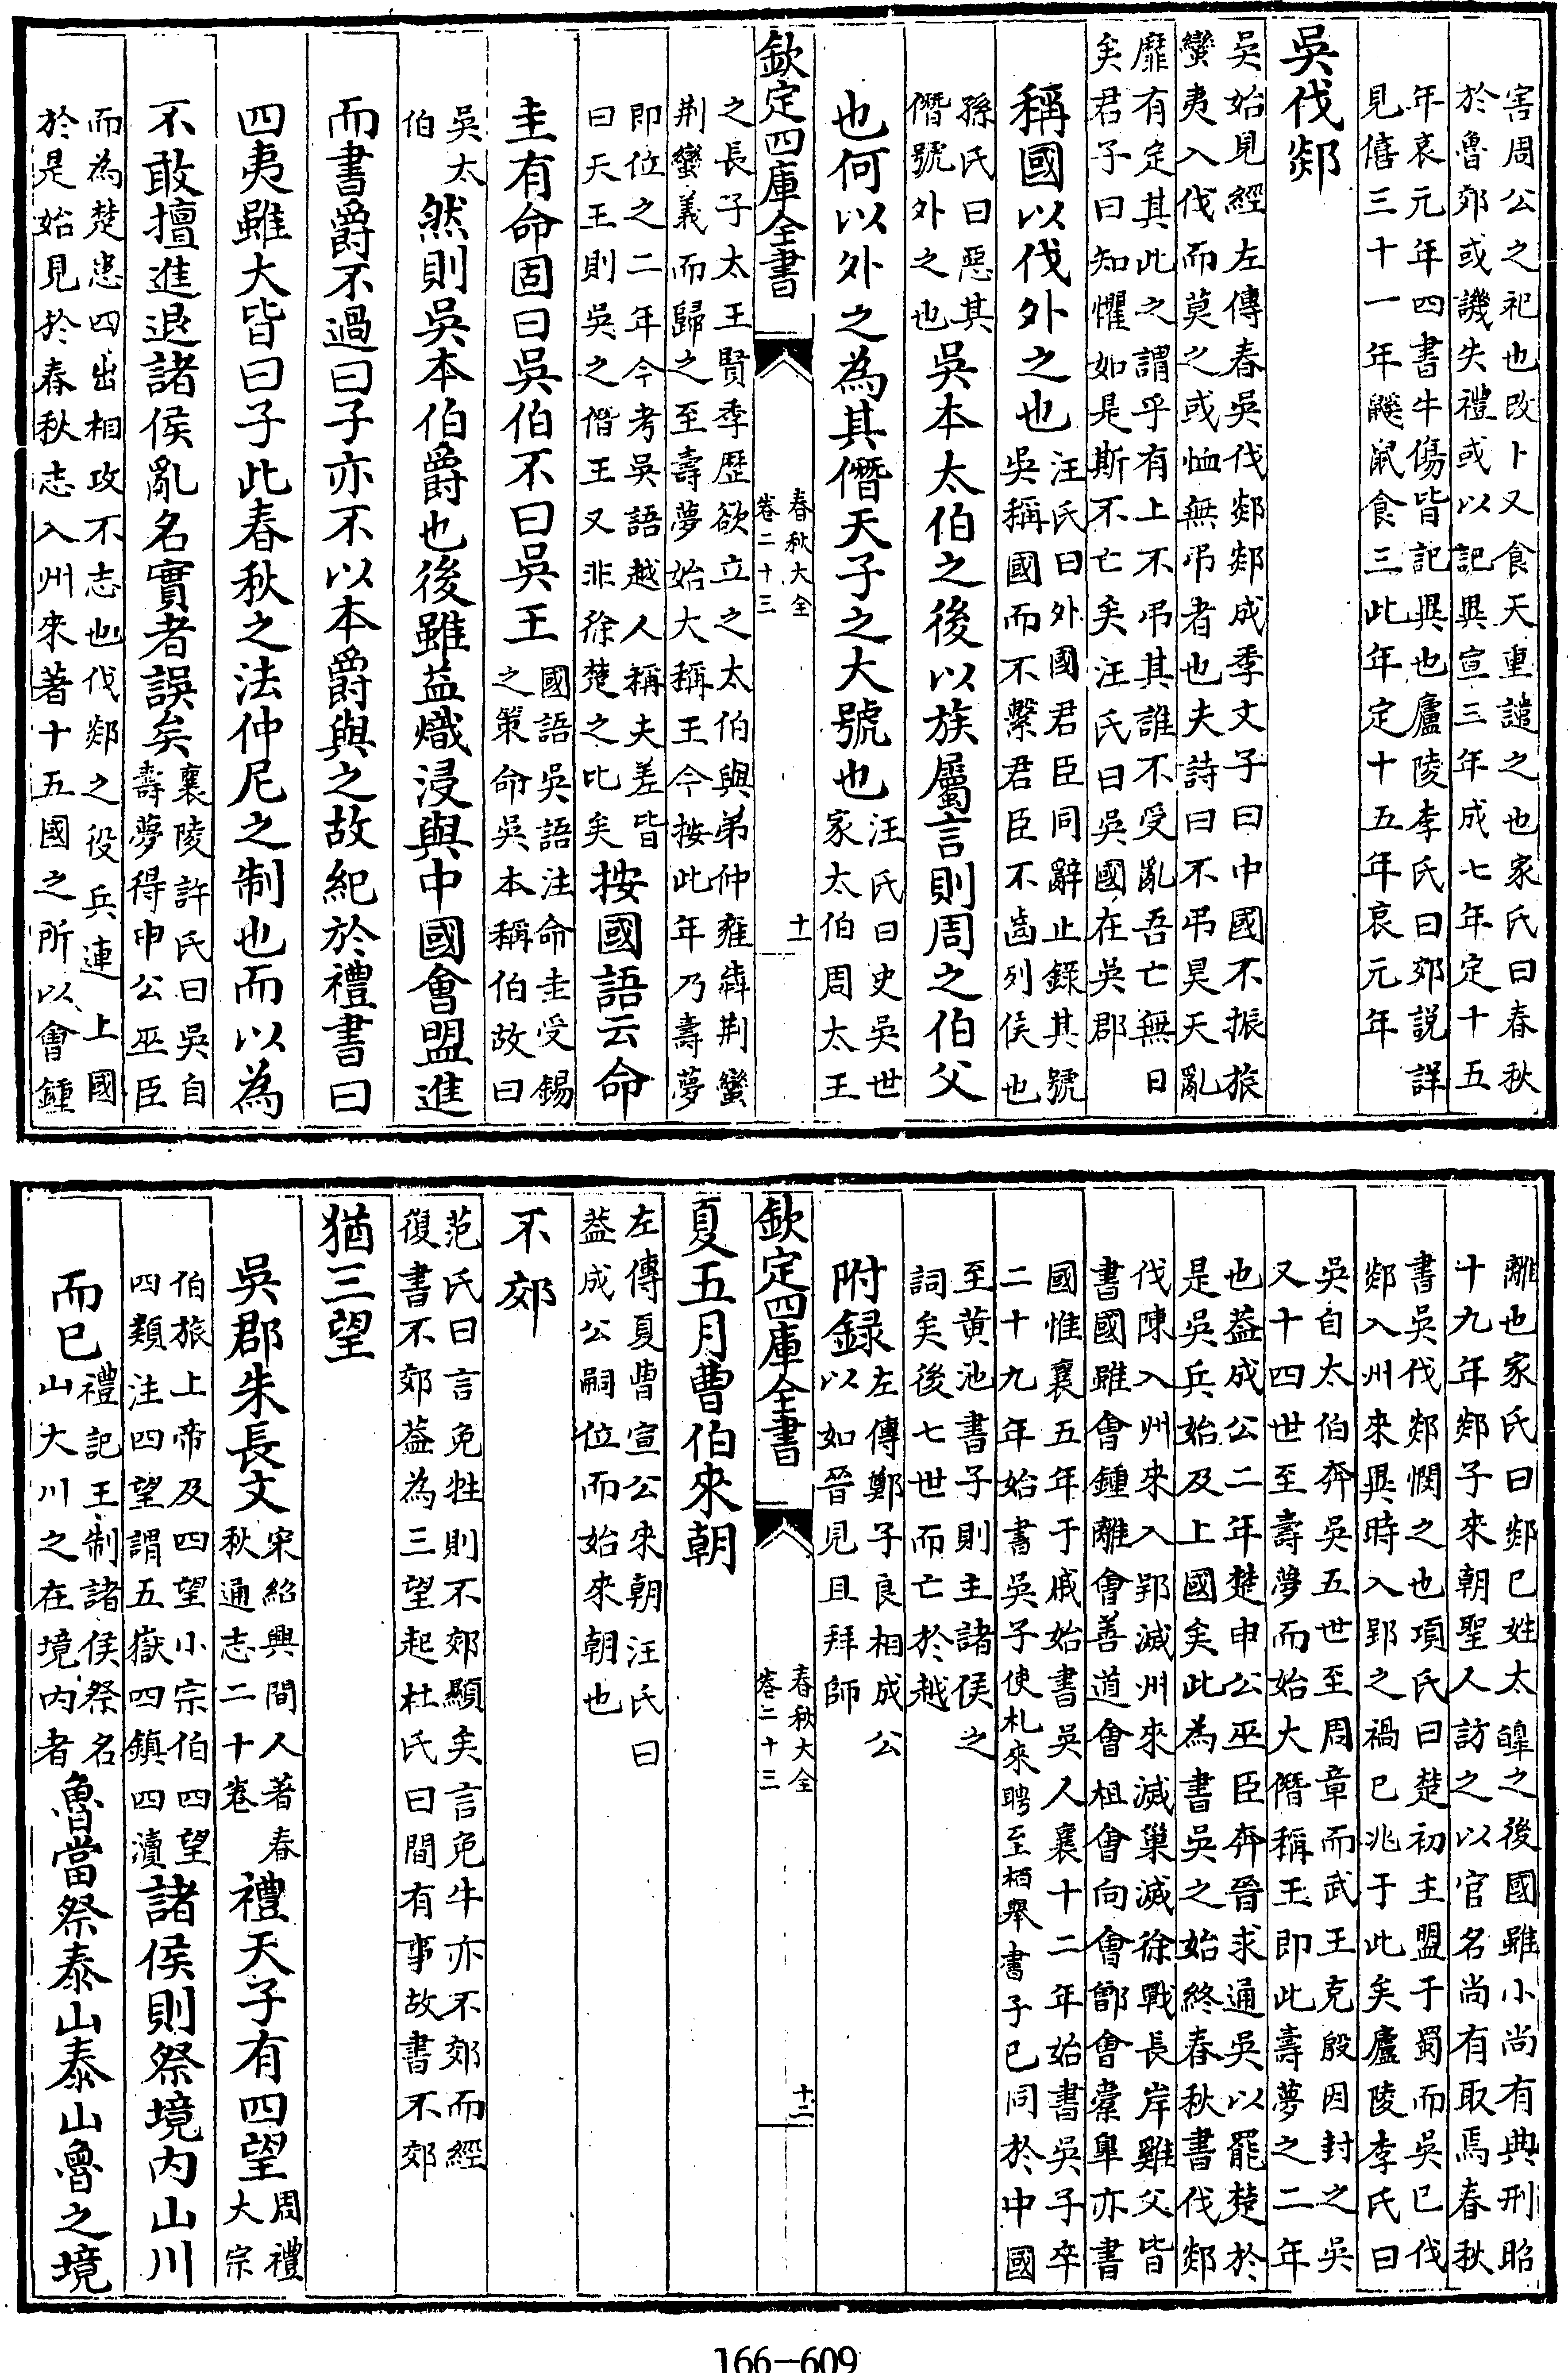 害周公之祀也改卜又食天重譴之也家氏曰春秋
於魯郊或譏失禮或以記異宣三年成七年定十五
年哀元年四書牛傷皆記異也廬陵李氏曰郊説詳
見僖三十一年鼷鼠食三此年定十五年哀元年
吳伐郯
吳始見經左傳春吳伐郯郯成季文子曰中國不振旅
蠻夷入伐而莫之或恤無弔者也夫詩曰不弔昊天亂
靡有定其此之謂乎有上不弔其誰不受亂吾亡無日
矣君子曰知懼如是斯不亡矣汪氏曰吳國在吳郡
稱國以伐外之也汪氏曰外國君臣同辭止錄其號
吳稱國而不繫君臣不齒列侯也
孫氏曰惡其
僭號外之也吳本太伯之後以族屬言則周之伯父
也何以外之為其僭天子之大號也汪氏曰史吳世
家太伯周太王
欽定四庫全書
春秋大全
卷二十三
十一
之長子太王賢季歴欲立之太伯與弟仲雍犇荆蠻
荆蠻義而歸之至壽夢始大稱王今按此年乃壽夢
即位之二年今考吳語越人稱夫差皆
曰天王則吳之僭王又非徐楚之比矣按國語云命
圭有命固曰吳伯不曰吳王國語吳語注命圭受錫
之策命吳本稱伯故曰
吳太
伯然則吳本伯爵也後雖益熾浸與中國會盟進
而書爵不過曰子亦不以本爵與之故紀於禮書曰
四夷雖大皆曰子此春秋之法仲尼之制也而以為
不敢擅進退諸侯亂名實者誤矣襄陵許氏曰吳自
壽夢得申公巫臣
而為楚患四出相攻不志也伐郯之役兵連上國
於是始見於春秋志入州來著十五國之所以會鍾
離也家氏曰郯巳姓太皥之後國雖小尚有典刑昭
十九年郯子來朝聖人訪之以官名尚有取焉春秋
書吳伐郯憫之也項氏曰楚初主盟于蜀而吳巳伐
郯入州來異時入郢之禍巳兆于此矣廬陵李氏曰
吳自太伯奔吳五世至周章而武王克殷因封之吳
又十四世至壽夢而始大僭稱王即此壽夢之二年
也葢成公二年楚申公巫臣奔晉求通吳以罷楚於
是吳兵始及上國矣此為書吳之始終春秋書伐郯
伐陳入州來入郢滅州來滅巢滅徐戰長岸雞父皆
書國雖會鍾離會善道會柤會向會鄫會橐臯亦書
國惟襄五年于戚始書吳人襄十二年始書吳子卒
二十九年始書吳子使札來聘至栢舉書子巳同於中國
至黄池書子則主諸侯之
詞矣後七世而亡於越
附録左傳鄭子良相成公
以如晉見且拜師
欽定四庫全書
春秋大全
卷二十三
十二
夏五月曹伯來朝
左傳夏曹宣公來朝汪氏曰
葢成公嗣位而始來朝也
不郊
范氏曰言免牲則不郊顯矣言免牛亦不郊而經
復書不郊葢為三望起杜氏曰間有事故書不郊
猶三望
吳郡朱長文宋紹興間人著春
秋通志二十卷禮天子有四望周禮
大宗
伯旅上帝及四望小宗伯四望
四類注四望謂五嶽四鎮四瀆諸侯則祭境内山川
而巳禮記王制諸侯祭名
山大川之在境内者魯當祭泰山泰山魯之境
166-609